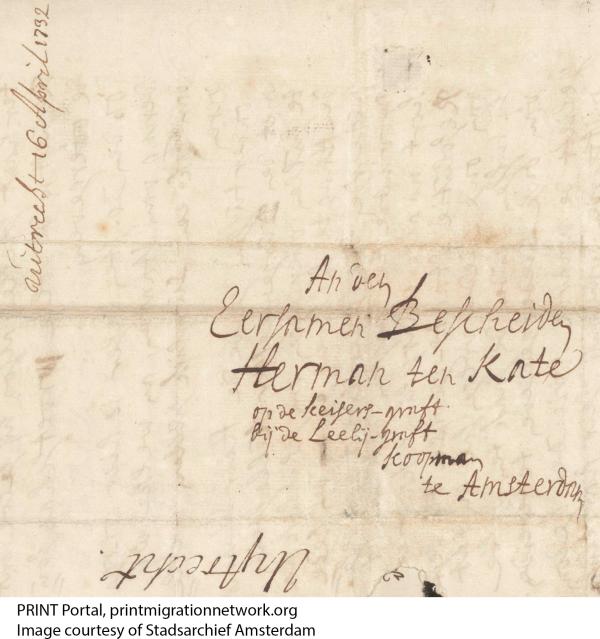 uitrecht 16 April 1732
An den
Eersamen Bescheiden
Herman ten Kate
op de keisers-graft
bij de Leelij-graft
koopman
te Amsterdam
Uijtrecht.
PRINT Portal, printmigrationnetwork.org
Image courtesy of Stadsarchief Amsterdam